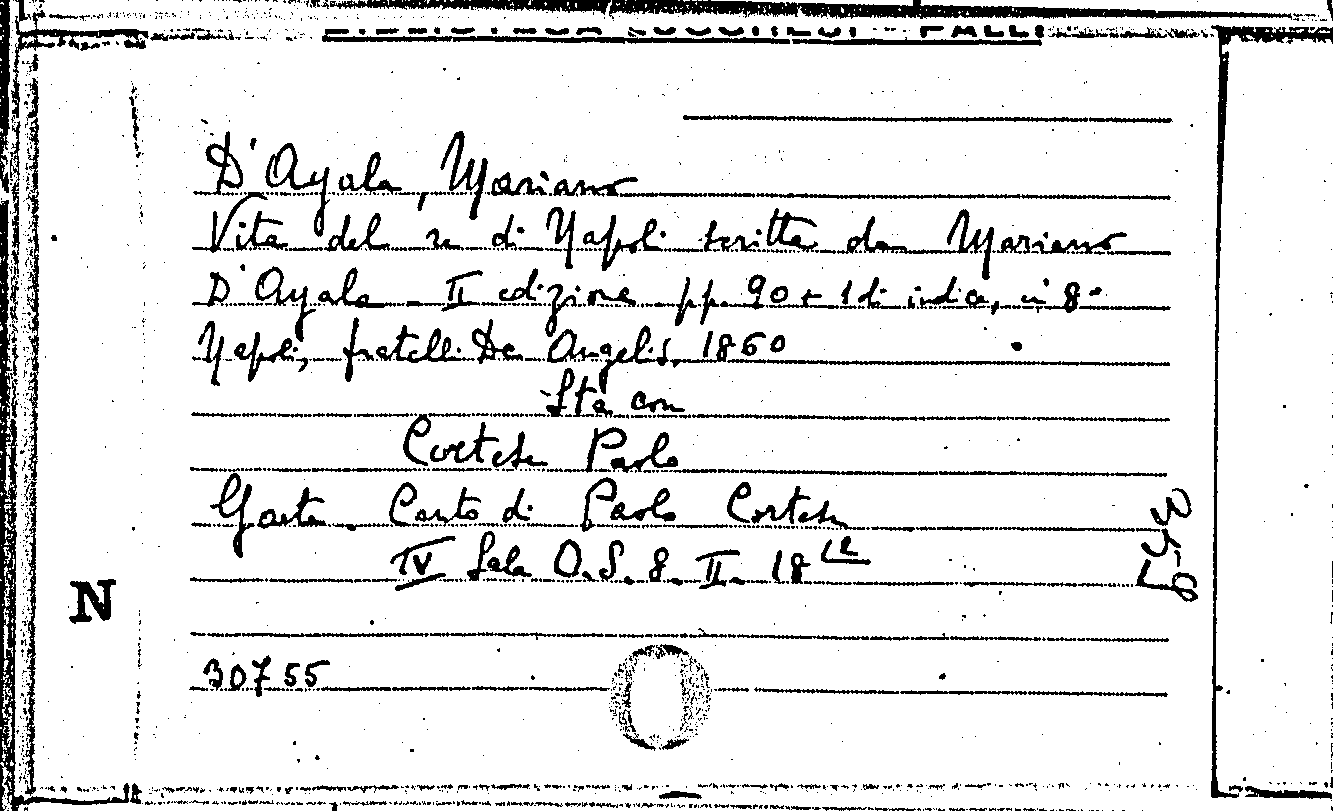 D'Ayala, Mariano
Vita del re di Napoli scritta da Mariano
D'Ayala - II edizione pp. 90 + 1 di indice, in 8°
Napoli, fratelli De Angelis, 1860
Sta con
Cortese Paolo
Gaeta. Canto di Paolo Cortese
IV Sala O.S. 8. II. 18
N
30755